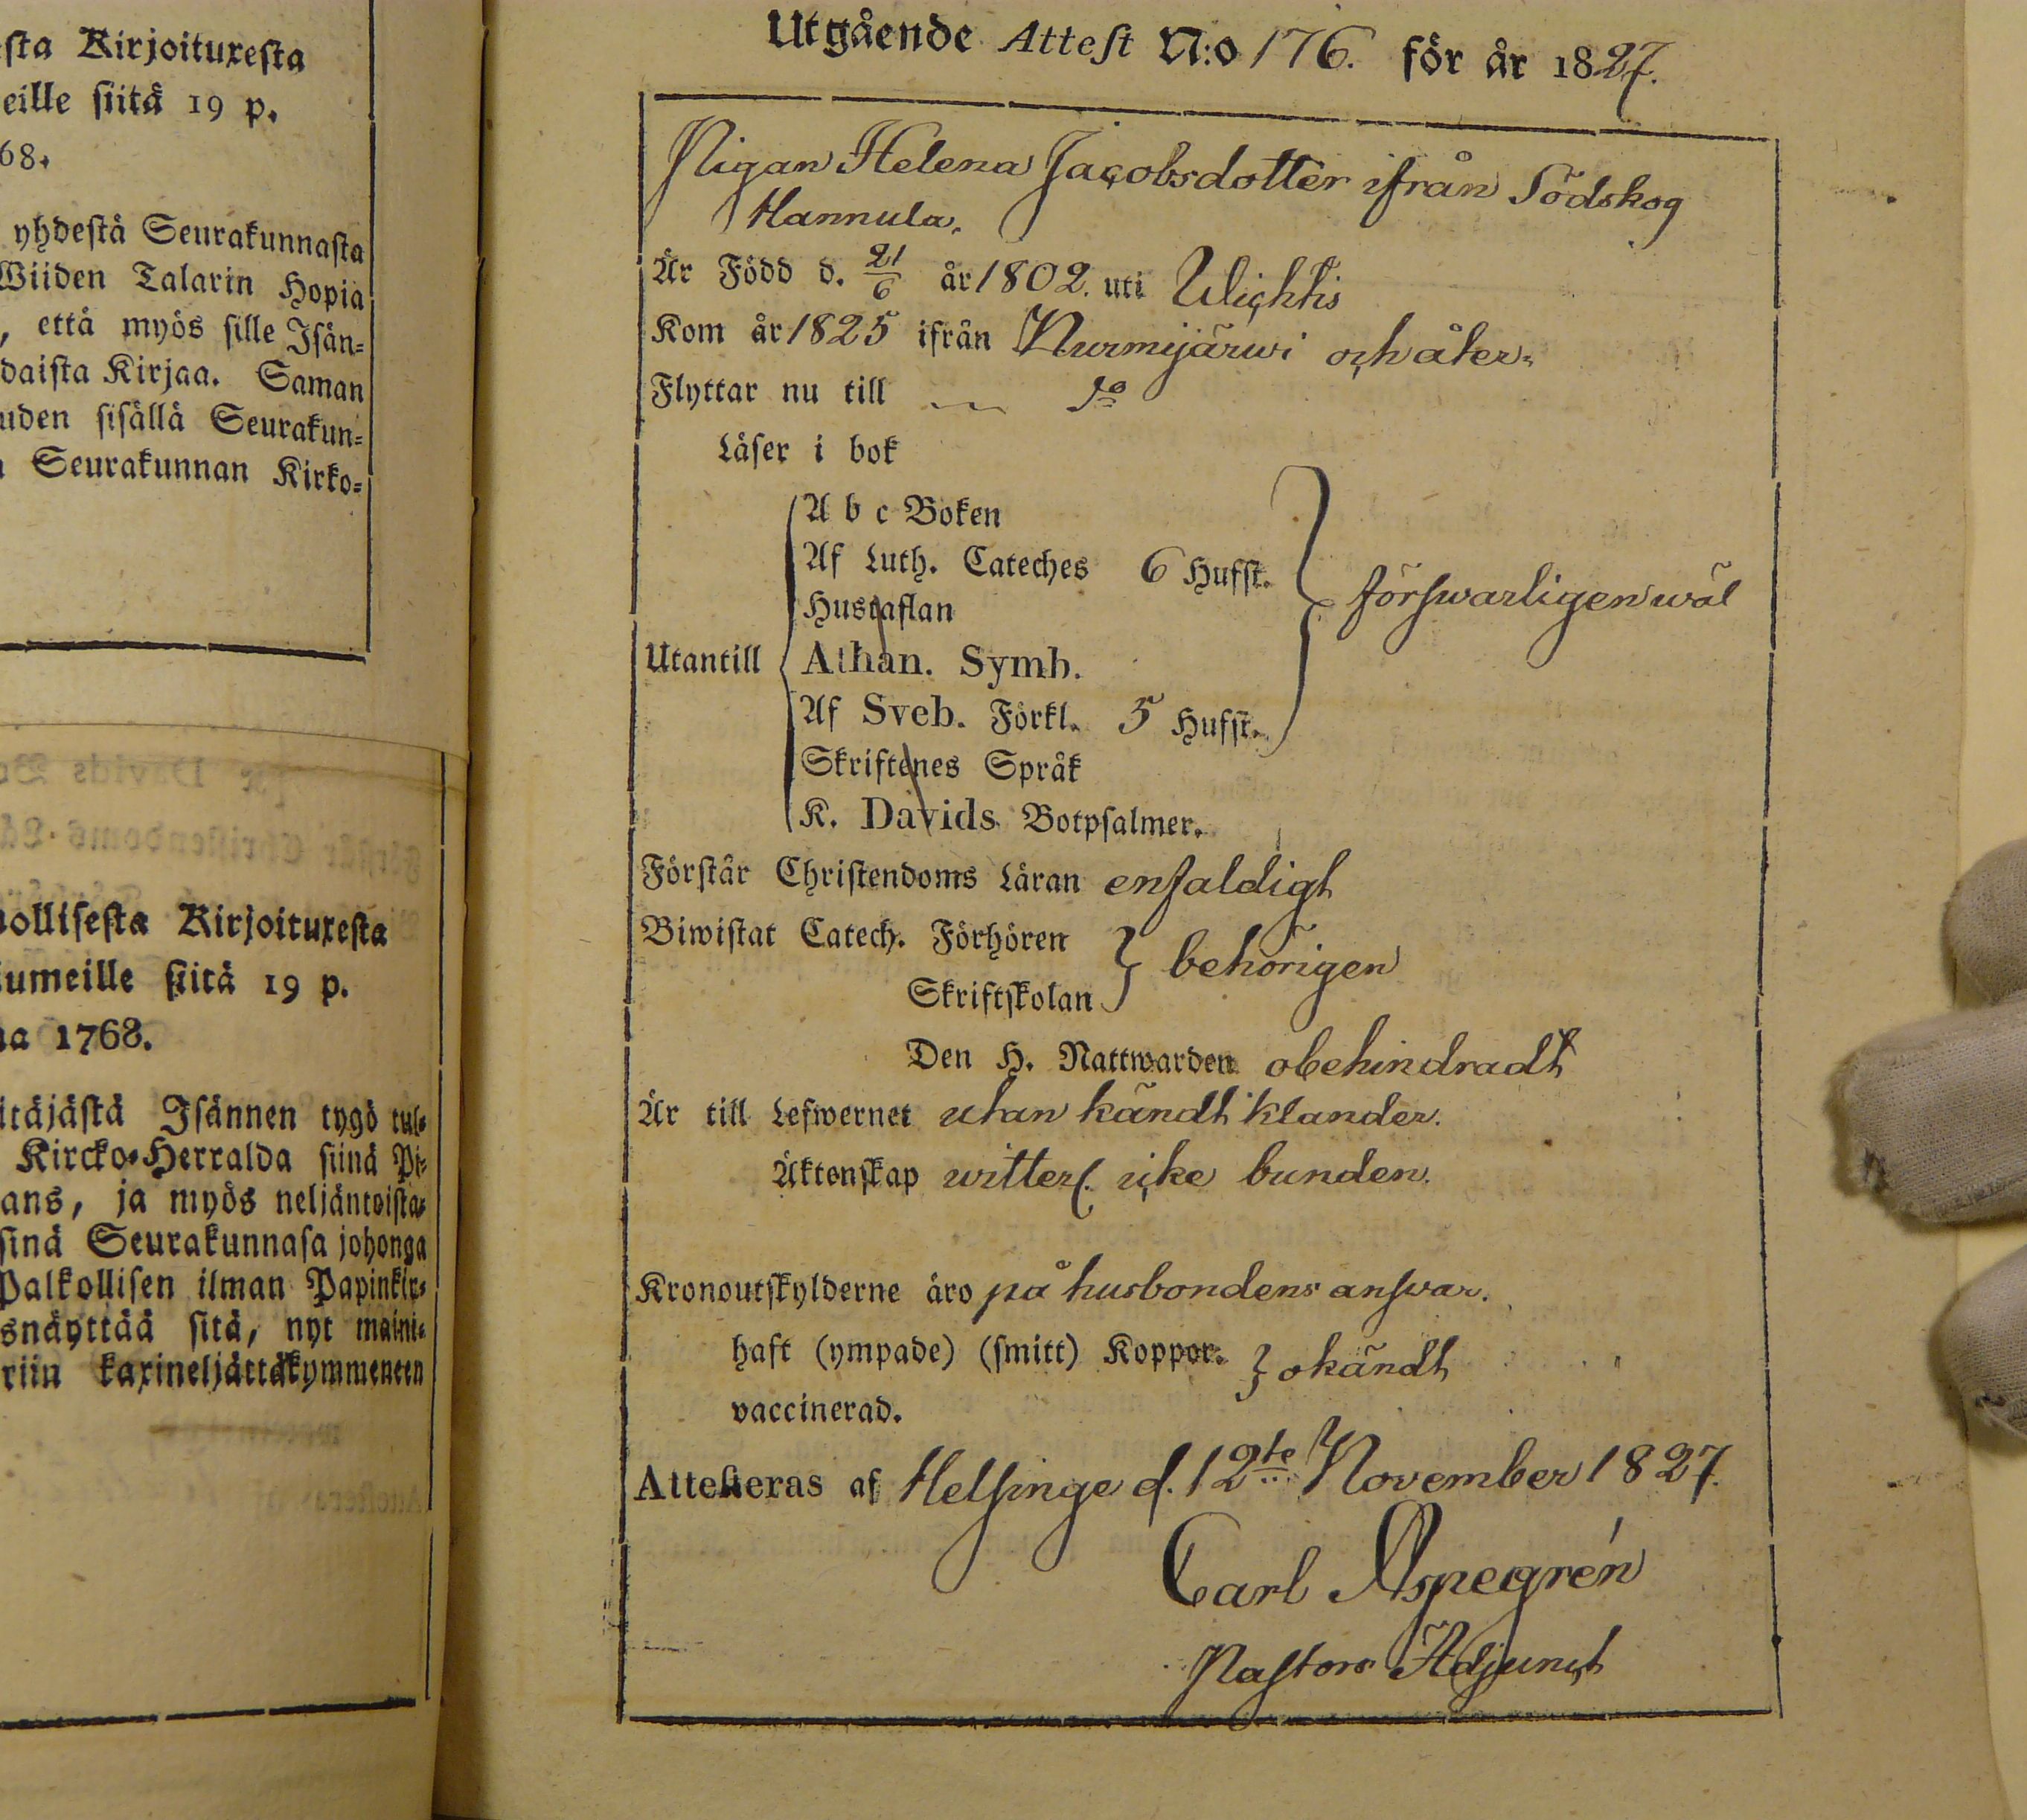 sta Kirjoituxesta
eille siitä 19 p.
68.
yhdestä Seurakunnasta
Wiiden Talarin Hopia
, että myös sille Isän=
daista Kirjaa. Saman
uden sisällä Seurakun=
Seurakunnan Kirko=
ollisesta Kirjoituxesta
umeille siitä 19 p.
na 1768.
itäjästä Isännen tygö tul=
Kircko=Herralda siinä Pi=
ans, ja myös neljäntoista=
sinä Seurakunnasa johonga
Palkollisen ilman Papinkir=
snäyttää sitä, nyt maini=
riin kaxineljättäkymmeneen
Utgående Attest N:o 176. för år 1827.
Pigan Helena Jacobsdotter ifrån Södskog
Hannula.
Är Född d. 21/6 år 1802. uti Wichtis
Kom år 1825 ifrån Nurmijärwi och åter=
Flyttar nu till — do
Läser i bok
A b c Boken
Af Luth. Cateches 6 Hufst.
Hustaflan
förswarligen wäl
Utantill Athan. Symb.
Af Sveb. Förkl. 5 Hufst.
Skriftenes Språk
K. Davids Botpsalmer.
Förstår Christendoms Läran enfaldigt
Biwistat Catech. Förhören
behörigen
Skriftskolan
Den H. Nattwarden obehindradt
Är till Lefwernet utan kändt klander.
Äktenskap witterl. icke bunden.
Kronoutskylderne äro på husbondens answar.
haft (ympade) (smitt) Koppor. } okändt
vaccinerad.
Attesteras af Helsinge d. 12te November 1827.
Carl Aspegrén
Pastors Adjunct